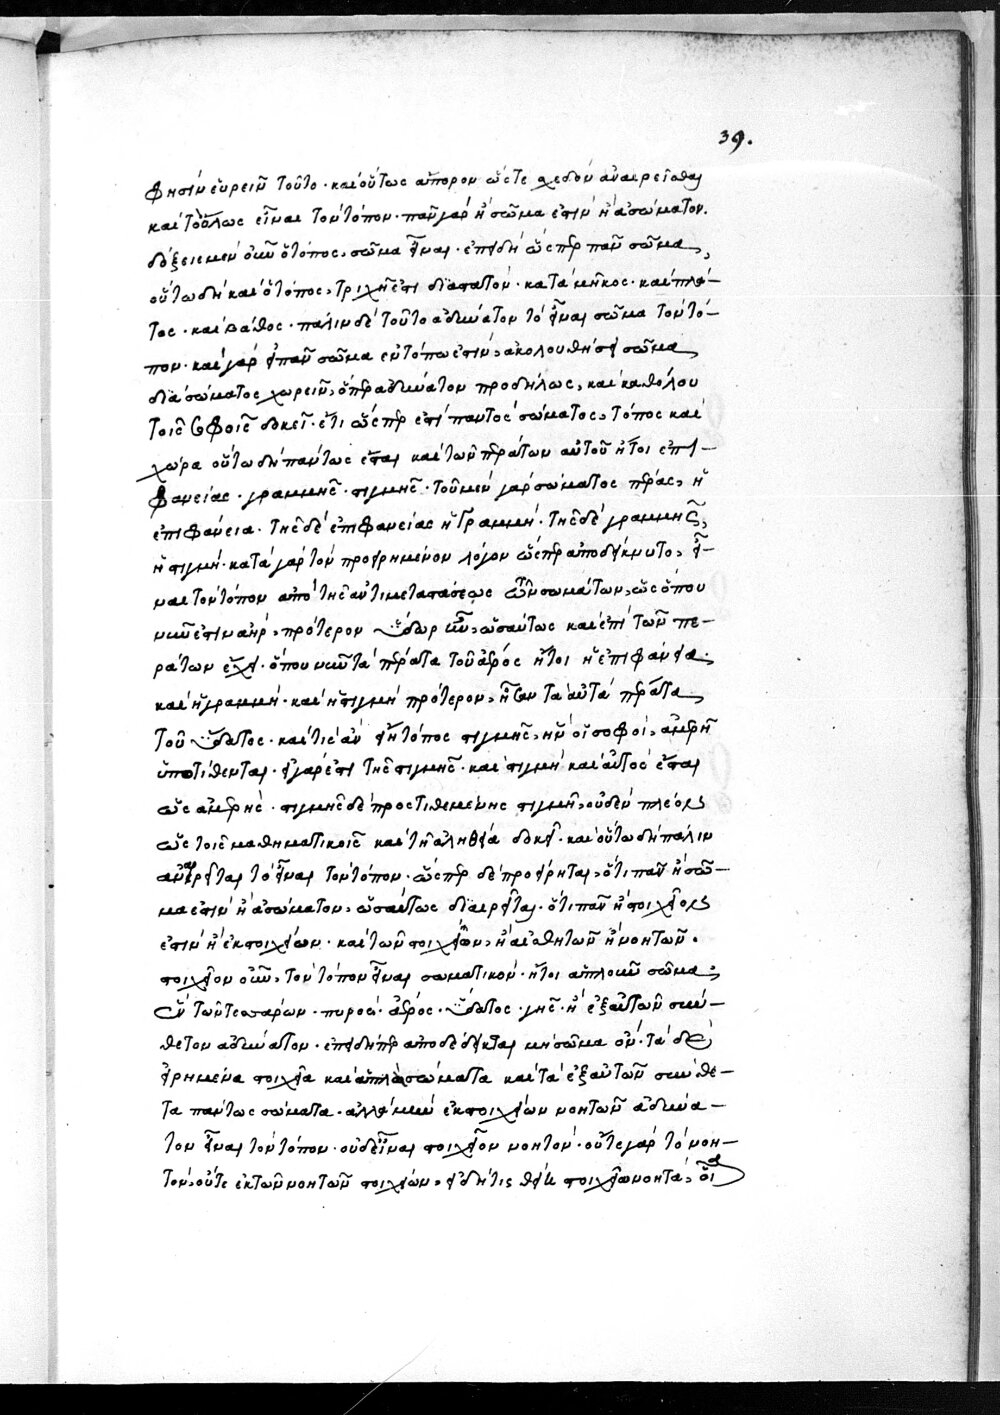 39.
φησὶν εὑρεῖν τοῦτο· καὶ οὕτως ἄπορον ὥστε σχεδὸν ἀναιρεῖσθαι
καὶ τὸ ὅλως εἶναι τὸν τόπον· πᾶν γὰρ ἢ σῶμα ἐστὶν ἢ ἀσώματον.
δόξειε μὲν οὖν ὁ τόπος, σῶμα εἶναι· ἐπειδὴ ὥσπερ πᾶν σῶμα,
οὕτω δὴ καὶ ὁ τόπος, τριχῆ ἐστι διαστατόν· κατὰ μῆκος· καὶ πλά-
τος· καὶ βάθος· πάλιν δὲ τοῦτο ἀδύνατον τὸ εἶναι σῶμα τὸν τό-
πον· καὶ γὰρ εἰ πᾶν σῶμα ἐν τόπω ἐστὶν, ἀκολουθήσει σῶμα
διὰ σώματος χωρεῖν, ὅπερ ἀδύνατον προδήλως, καὶ καθόλου
τοῖς σοφοῖς δοκεῖ· ἔτι ὥσπερ ἐστὶ παντὸς σώματος, τόπος καὶ
χώρα οὕτω δὴ πάντως ἔσται καὶ τῶν περάτων αὐτοῦ ἤτοι ἐπι-
φανείας· γραμμῆς· στιγμῆς· τοῦ μὲν γὰρ σώματος πέρας, ἡ
ἐπιφάνεια· τῆς δὲ ἐπιφανείας ἡ γραμμή· τῆς δὲ γραμμῆς,
ἡ στιγμή· κατὰ γὰρ τὸν προειρημένον λόγον ὥσπερ ἀποδείκνυτο, εἶ-
ναι τὸν τόπον ἀπὸ τῆς ἀντιμεταστάσεως τῶν σωμάτων, ὡς ὅπου
νῦν ἐστιν ἀὴρ, πρότερον ὕδωρ ἦν, ὡσαύτως καὶ ἐπὶ τῶν πε-
ράτων ἔχει· ὅπου νῦν τὰ πέρατα τοῦ ἀέρος ἤτοι ἡ ἐπιφάνεια·
καὶ ἡ γραμμή· καὶ ἡ στιγμὴ πρότερον, ἦσαν τὰ αὐτὰ πέρατα,
τοῦ ὕδατος· καὶ τίς ἂν εἴη τόπος στιγμῆς, ἣν οἱ σοφοὶ, ἀμερῆ
ὑποτίθενται· εἰ γάρ ἐστι τῆς στιγμῆς· καὶ στιγμὴ καὶ αὐτὸς ἔσται
ὡς ἀμερής· στιγμῆς δὲ προστιθεμένης στιγμῆ, οὐδὲν πλέον
ὡς τοῖς μαθηματικοῖς καὶ τῆ ἀληθεία δοκεῖ· καὶ οὕτω δὴ πάλιν
ἀναιρεῖται τὸ εἶναι τὸν τόπον· ὥσπερ δὲ προείρηται, ὅτι πᾶν ἢ σῶ-
μα ἐστὶν ἢ ἀσώματον, ὡσαύτως διαιρεῖται· ὅτι πᾶν ἢ στοιχεῖον
ἐστὶν ἢ ἐκ στοιχείων· καὶ τῶν στοιχείων, ἢ αἰσθητῶν ἢ νοητῶν·
στοιχεῖον οὖν, τὸν τόπον εἶναι σωματικόν· ἤτοι ἁπλοῦν σῶμα,
ἐκ τῶν τεσσάρων· πυρός· ἀέρος· ὕδατος· γῆς· ἢ ἐξ αὐτῶν σύν-
θετον ἀδύνατον· ἐπειδήπερ ἀποδέδεικται μὴ σῶμα ὄν· τὰ δὲ
εἰρημένα στοιχεῖα καὶ ἁπλᾶ σώματα καὶ τὰ ἐξ αὐτῶν σύνθε-
τα πάντως σώματα· ἀλλὰ μὴν ἐκ στοιχείων νοητῶν ἀδύνα-
τον εἶναι τὸν τόπον· οὐδ' εἶναι στοιχεῖον νοητόν· οὔτε γὰρ τὸ νοη-
τὸν, οὔτε ἐκ τῶν νοητῶν στοιχείων, εἰ δή τις θείη στοιχεῖα νοητὰ, οἷα